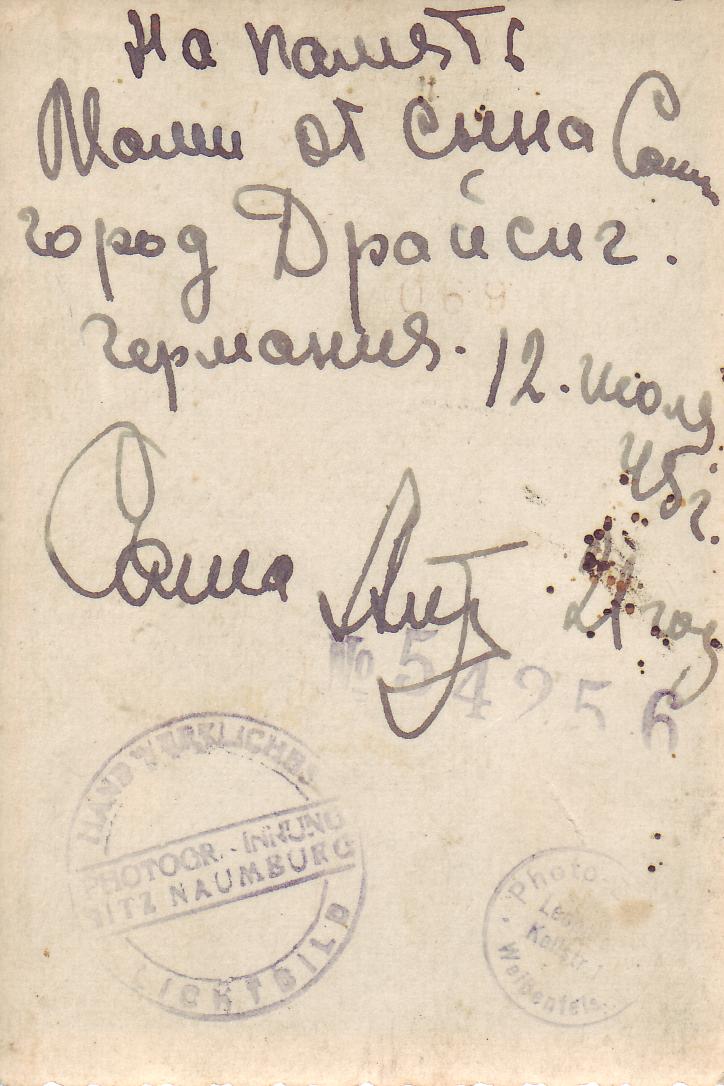 На память
Мами от сына Саши
город Драйсиг.
Германия. 12. июля
45г.
Саша
21 год
№ 54256
HANDWERKLICHES
PHOTOGR.-INNUNG
SITZ NAUMBURG
LICHTBILD
Photo
Weißenfels